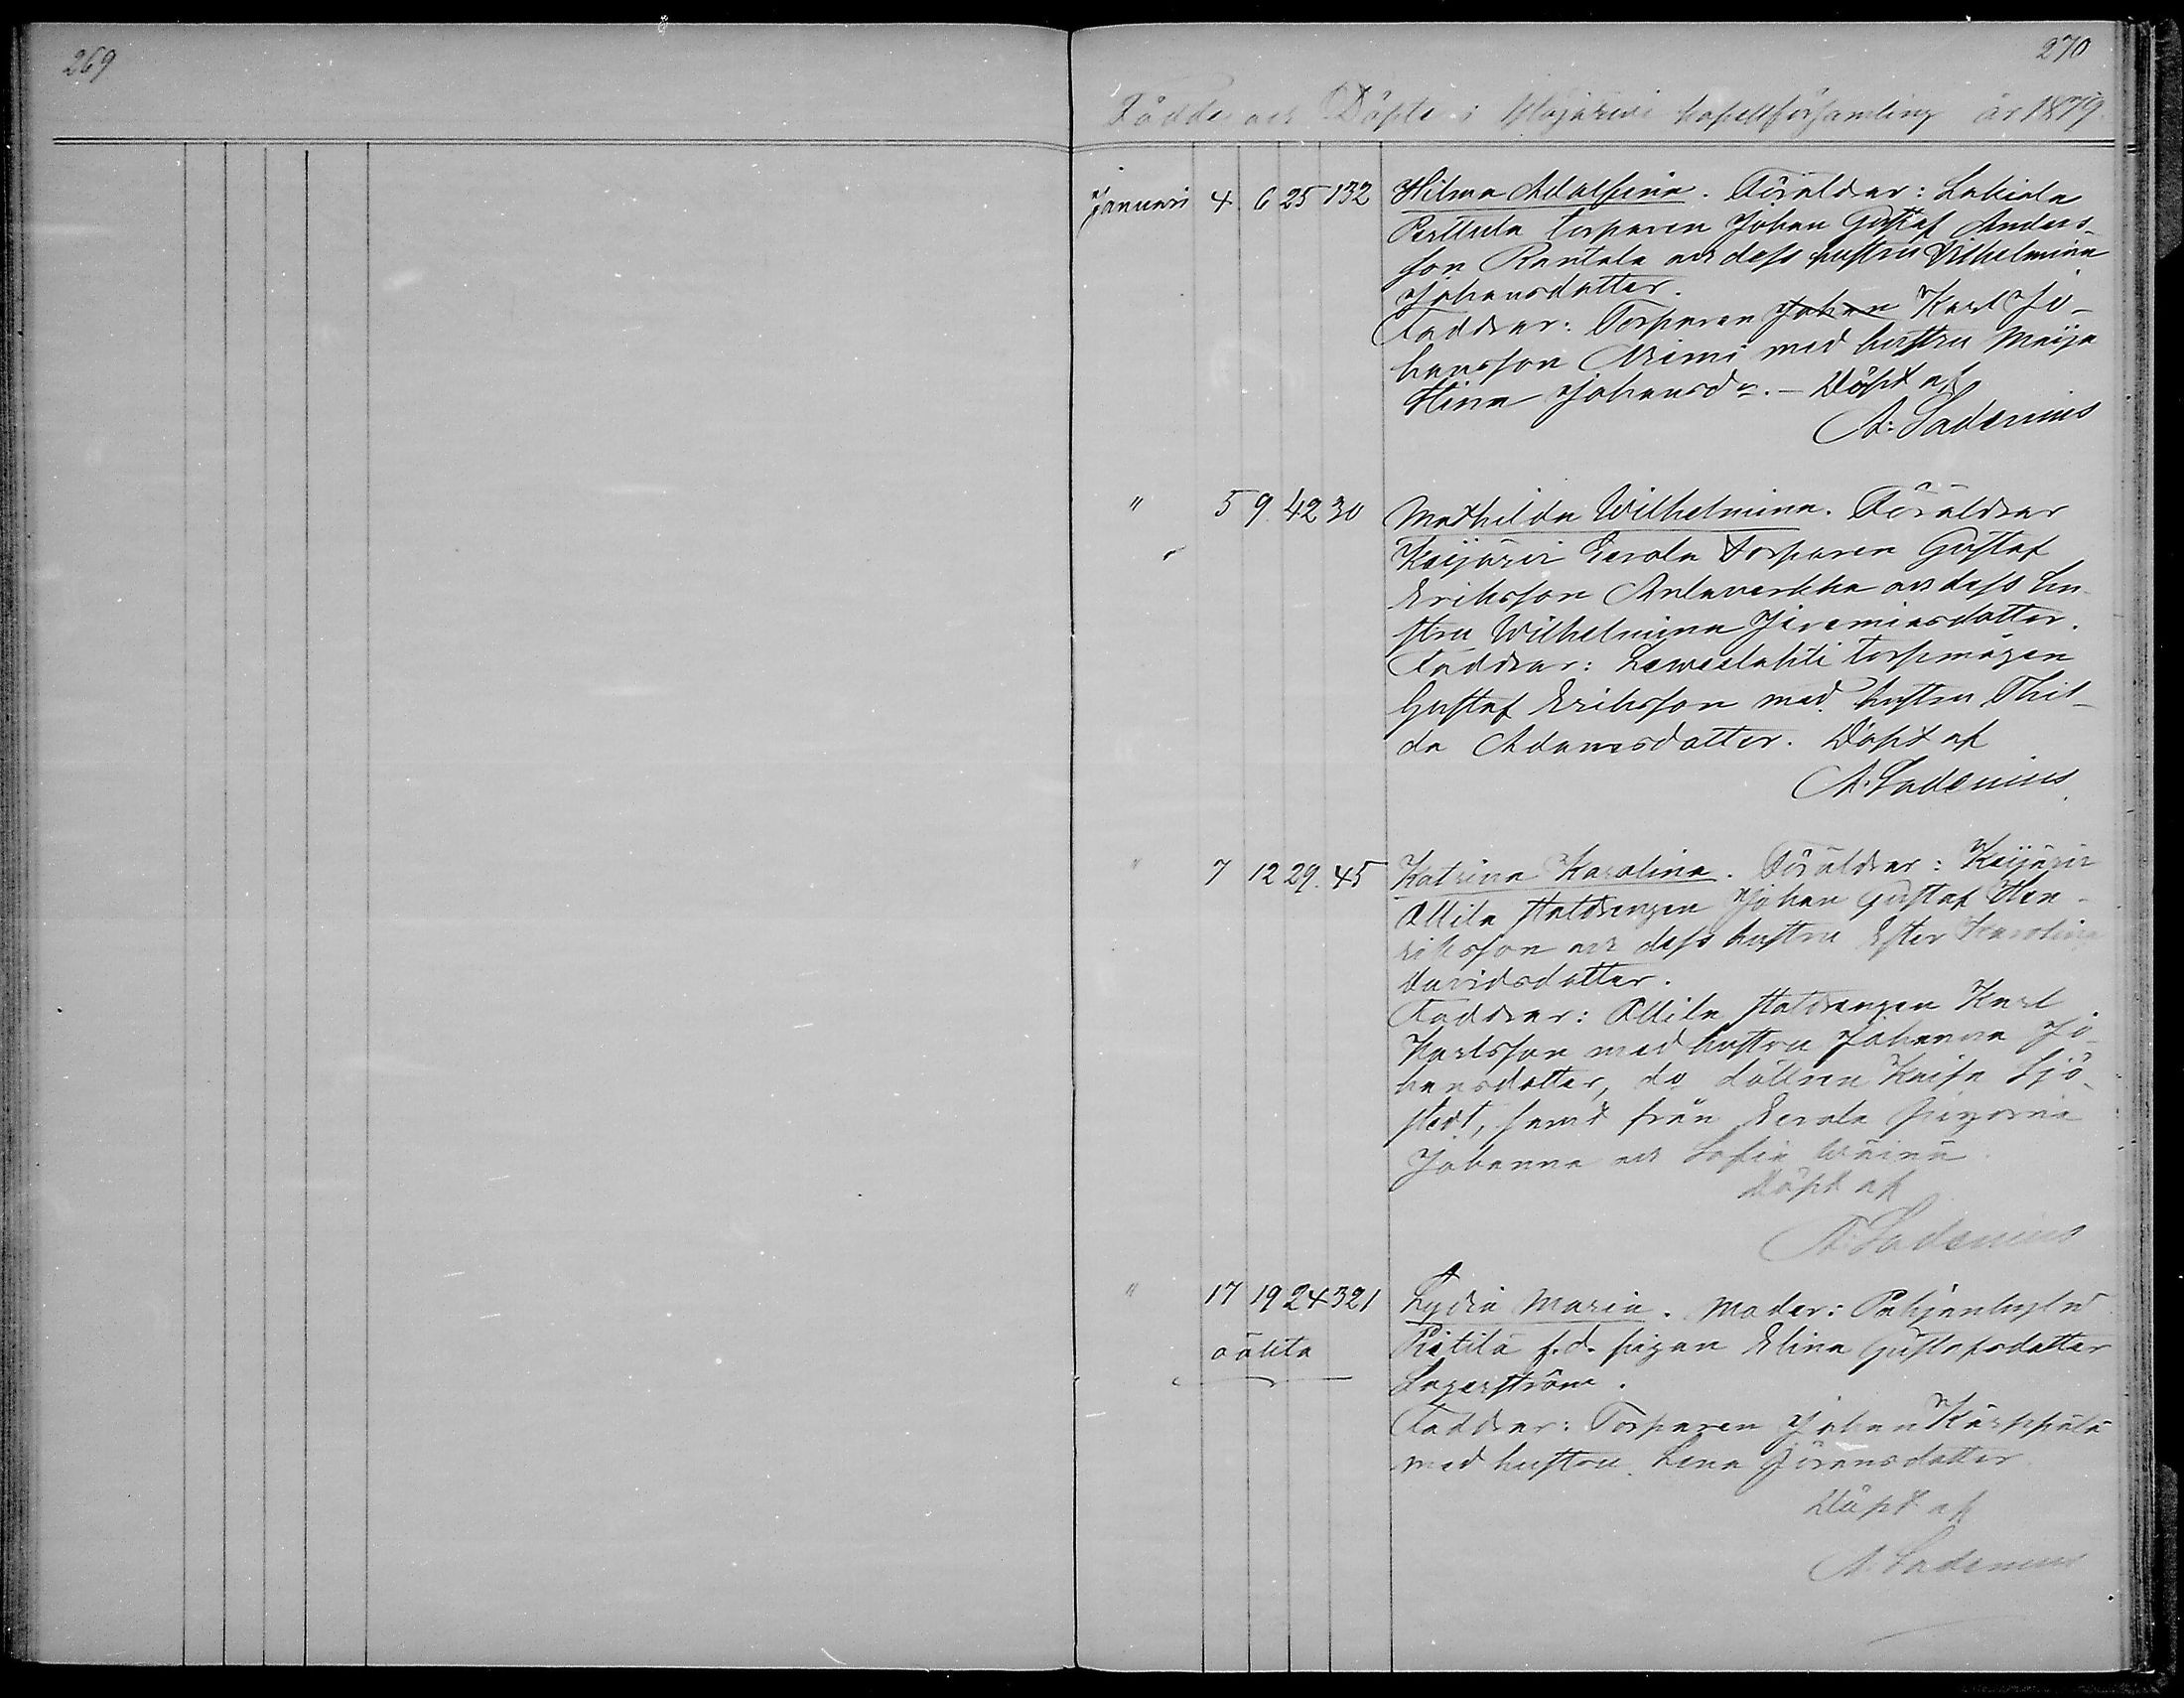 269
270
Födde och Döpte i kapellförsamling år 1879.
Januari 4. 6 25 132 Hilma Adolfina. Föräldrar: Lahiala
Perttula torparen Johan Gustaf Anders-
son Rantala och dess hustru Vilhelmina
Johansdotter.
Faddrar: Torparen Johan Karl Jo-
hansson Niemi med hustru Maija
Stina Johansdr. - Döpt af
A: Ladenius
" 5 9. 42 30 Mathilda Wilhelmina. Föräldrar
Keijärvi Eerola Torparen Gustaf
Eriksson och dess hu-
stru Wilhelmina Jeremiasdotter.
Faddrar: torpmågen
Gustaf Eriksson med hustru Thil-
da Adamsdotter. Döpt af
A. Ladenius.
" 7 12 29. 45 Katrina Karolina. Föräldrar: Keijärvi
Ollila Statdrengen Johan Gustaf Hen-
riksson och dess hustru Ester Karolina
Davidsdotter.
Faddrar: Ollila Statdrengen Karl
Karlsson med hustru Johanna Jo-
hansdotter, do dottren Kaisa Sjö-
stedt, samt från Eerola pigorna
Johanna och Sofia
Döpt af
A. Ladenius
" 17 19 24 321 Lydia Maria. Moder:
oäkta Pietilä f.d. pigan Elina Gustafsdotter
Lagerström.
Faddrar: Torparen Johan Kärppälä
med hustru Lena Göransdotter
Döpt af
A. Ladenius